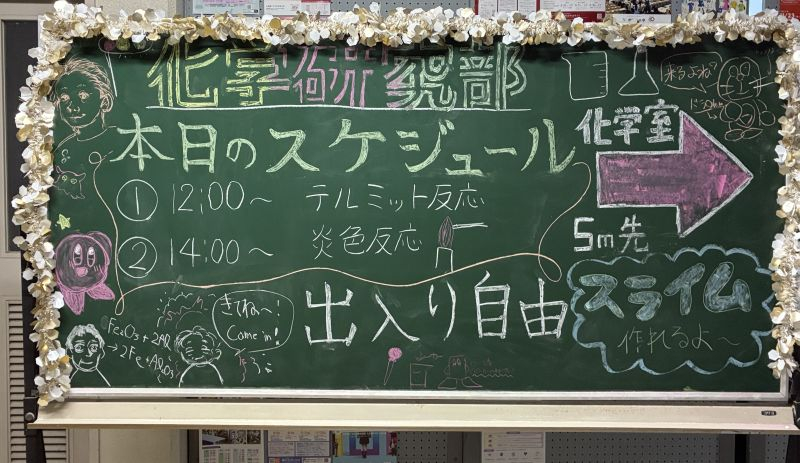 化学研究部
本日のスケジュール
① 12:00〜 テルミット反応
② 14:00〜 炎色反応
出入り自由
化学室
5m先
スライム
作れるよ〜
来るよね?
きてね〜!
Come in!
Fe₂O₃+2Al
→2Fe+Al₂O₃